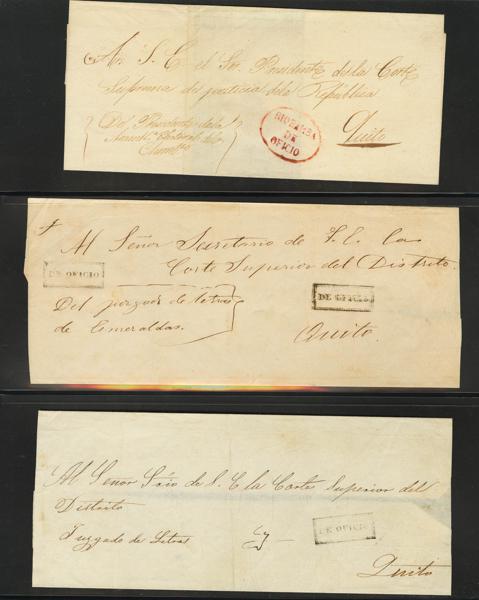 A. S. E. el Sor. Presidente de la Corte
Suprema de justicia dela República
Del Presidente dela
Electoral del
RIOBAMBA
DE
OFICIO
Quito
Al Señor Secretario de S. E. la
Corte Superior del Distrito.
DE OFICIO
DE OFICIO
Del juzgado de letras
de Esmeraldas.
Quito.
Al Señor Srio de S. E la Corte Superior del
Distrito
Juzgado de Letras
DE OFICIO
Quito